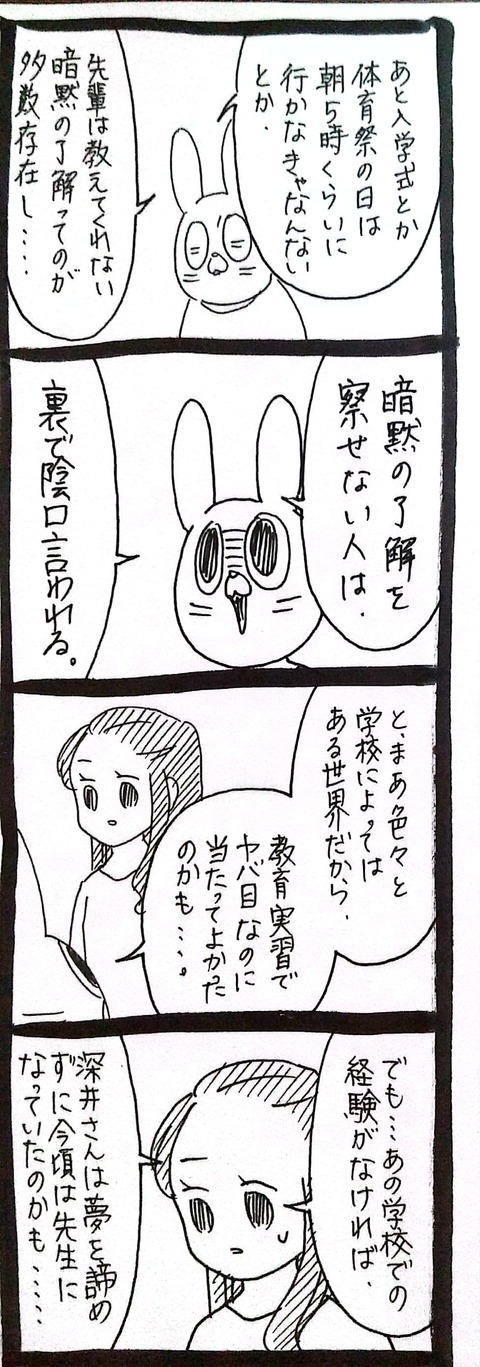 あと入学式とか
体育祭の日は
朝5時くらいに
行かなきゃなんない
とか.
先輩は教えてくれない
暗黙の了解ってのが
多数存在し‥‥
暗黙の了解を
察せない人は.
裏で陰口言われる。
と、まあ色々と
学校によっては
ある世界だから.
教育実習で
ヤバ目なのに
当たってよかった
のかも…。
でも…あの学校での
経験がなければ.
深井さんは夢を諦め
ずに今頃は先生に
なっていたのかも‥‥‥